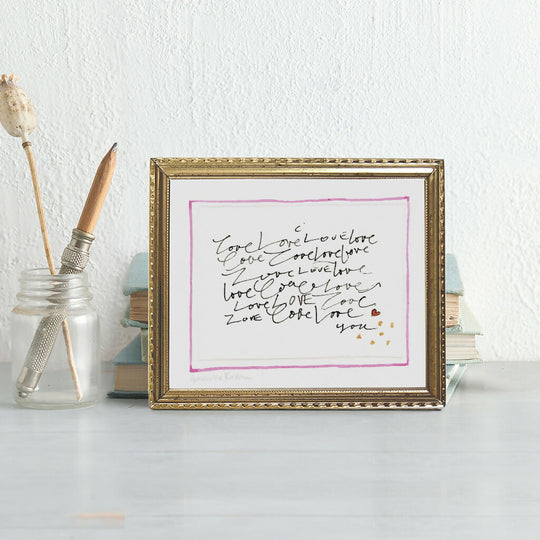 i
Love Love LOVE love
Love Love Love love
Love LOVE love
love Love Love
LOVE LOVE Love
LOVE Love Love
you